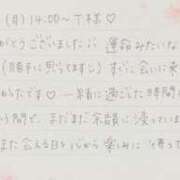 (月)14:00〜 T様♡
がとうございました!! 運命みたいな
(勝手に思ってます) すごく会いに来
かったです♡ 一緒に過ごした時間
ら間で、まだまだ余韻に浸ってい
また会える日を心から楽しみに待って